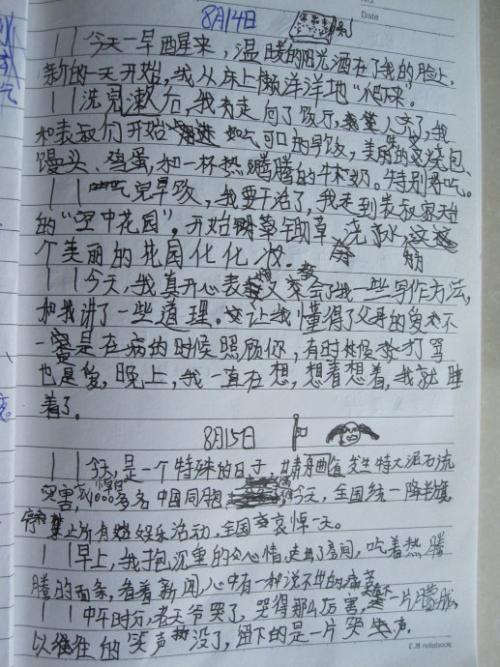 8月14日
Date
今天一早醒来,温暖的阳光洒在了我的脸上,
新的一天开始,我从床上懒洋洋地“爬床”。
洗完漱后,我走向了饭厅,我
和表叔们开始吃可口的早饭,美丽的叉烧包、
馒头、鸡蛋,和一杯热腾腾的牛奶。特别好吃。
吃完早饭,我要干活了,我走到表叔家天台
的“空中花园”。开始锄草,浇水
个美丽的花园化化妆.
今天,我真开心表叔又教会了我一些写作方法,
和我讲了一些道理。这让我懂得了父母的爱不
一定是在病的时候照顾你,有时候打骂
也是爱,晚上,我一直在想,想着想着,我就睡
着了.
8月15日
今天,是一个特殊的日子,甘肃舟曲发生特大泥石流
灾害,1000多名中国同胞 今天,全国统一降半旗
停止所有娱乐活动.全国哀悼一天。
早上,我抱沉重的心情,走出了房间,吃着热腾
腾的面条,看着新闻,心中有一种说不出的痛苦
中午时分,老天爷哭了,哭得那么厉害,一片朦胧
以往的笑声没了,留下的是一片哭声.
notebook